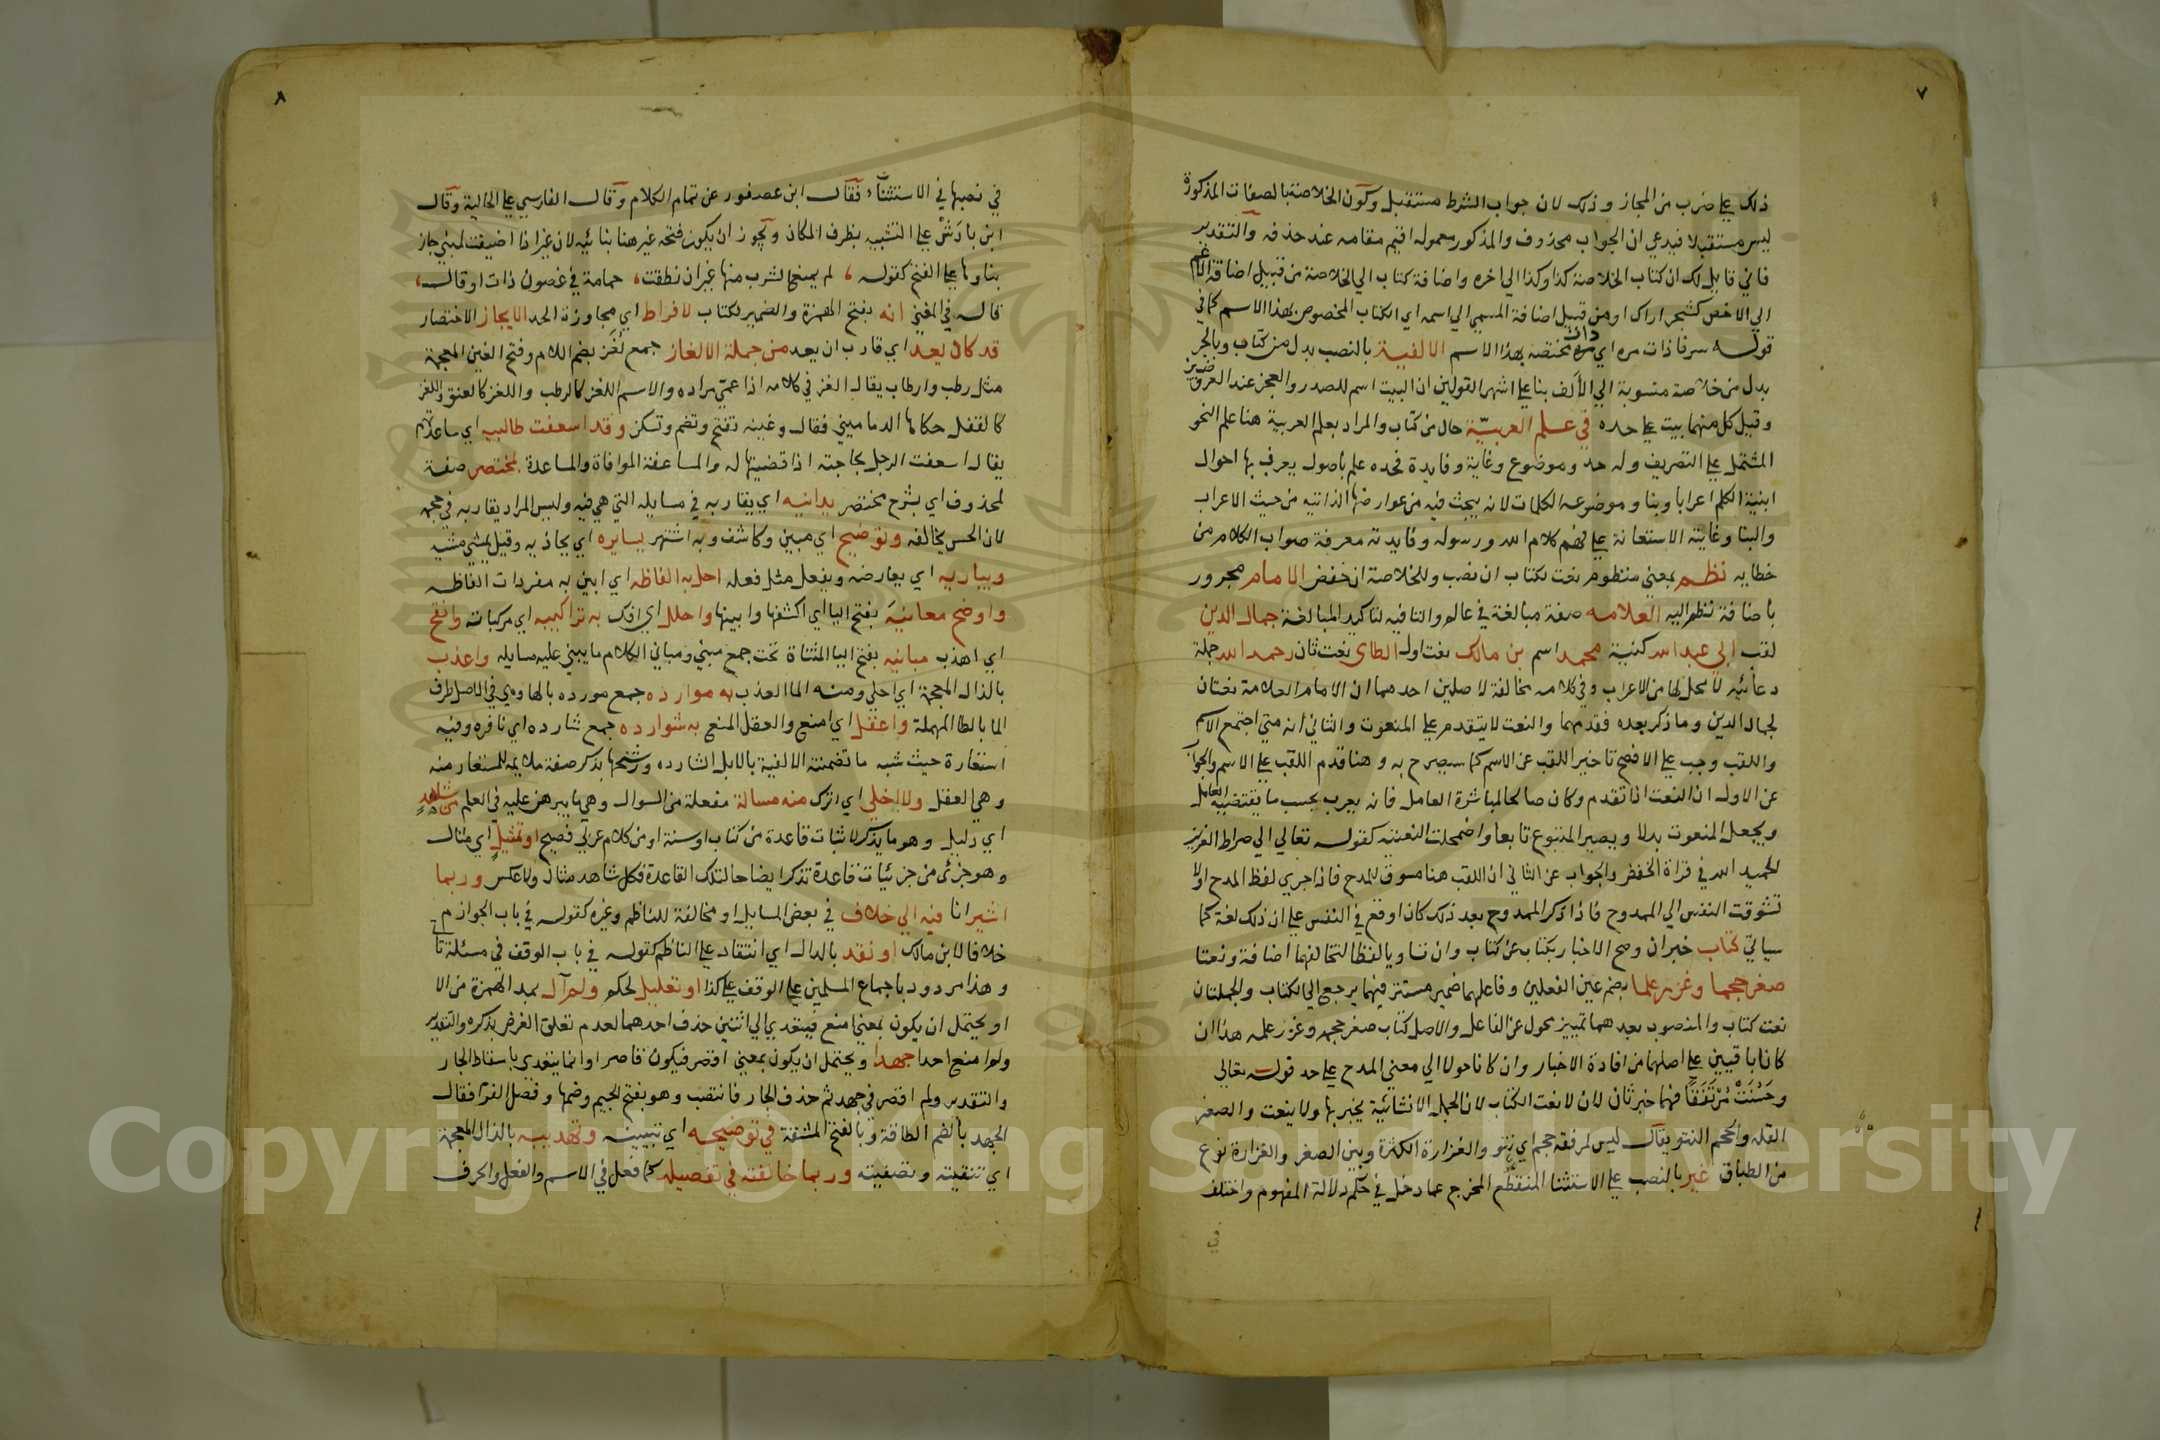 ٧
ذلك على ضرب من المجاز وذلك لان جواب الشرط مستقبل وكون الخلاصة بالصفات المذكورة
ليس مستقبلا فيدعي ان الجواب محذوف والمذكور معموله اقيم مقامه عند حذفه والتقدير
فاني قايل لك ان كتاب الخلاصة كذا وكذا الي اخره واضافة كتاب الي الخلاصة من قبيل اضافة الاعم
الي الاخص كشجر اراك او من قبيل اضافة المسمي الي اسمه اي الكتاب المخصوص بهذا الاسم كما في
قوله سرنا ذات مره اي ذات مرة مختصة بهذا الاسم الالفية بالنصب بدل من كتاب وبالجر
بدل من خلاصة منسوبة الي الألف بنا على اشهر القولين ان البيت اسم للصدر والعجز عند العروضيين
وقيل كل منهما بيت على حده في علم العربيّة حال من كتاب والمراد بعلم العربية هنا علم النحو
المشتمل على التصريف وله حد وموضوع وغاية وفايدة فحده علم باصول يعرف بها احوال
ابنية الكلم اعرابا وبنا وموضوعه الكلمات لانه يبحث فيه من عوارضها الذاتيه من حيث الاعراب
والبنا وغايته الاستعانة على فهم كلام الله ورسوله وفايدته معرفة صواب الكلام من
خطايه نظم بمعني منظوم نعت لكتاب ان نصب وللخلاصة ان خفض الامام مجرور
باضافة نظم اليه العلامه صفة مبالغة في عالم والتا فيه لتاكيد المبالغة جمال الدين
لقب ابي عبد الله كنية محمد اسم بن مالك نعت اول الطاي نعت ثان رحمه الله جملة
دعائيه لا محل لها من الاعراب وفي كلامه مخالفة لاصلين احدهما ان الامام العلامة نعتان
لجمال الدين وما ذكر بعده فقدمهما والنعت لا يتقدم على المنعوت والثاني انه متي اجتمع الاسم
واللقب وجب على الافصح تاخير اللقب عن الاسم كما سيصرح به وهنا قدم اللقب على الاسم والجواب
عن الاول ان النعت اذا تقدم وكان صالحا لمباشرة العامل فانه يعرب بحسب ما يقتضيه العامل
ويجعل المنعوت بدلا ويصير المتبوع تابعا واضمحلت النعتيه كقوله تعالي الي صراط العزيز
الحميد الله في قراة الخفض والجواب عن الثاني ان اللقب هنا مسوق للمدح فاذا جري لفظ المدح اولا
تشوقت النفس الي الممدوح فاذا ذكر الممدوح بعد ذلك كان اوقع في النفس على ان ذلك لغة كما
سياتي كتاب خبر ان وصح الاخبار بكتاب عن كتاب وان تساويا لفظا لتخالفهما اضافة ونعتا
صغر حجما وغزر علما بضم عين الفعلين وفاعلهما ضمير مستتر فيهما يرجع الي الكتاب والجملتان
نعت كتاب والمنصوب بعدهما تمييز محول عن الفاعل والاصل كتاب صغر حجمه وغزر علمه هذا ان
كانا باقيين على اصلهما من افادة الاخبار وان كانا حولا الي معني المدح على حد قوله تعالي
وحَسُنَتْ مُرْتَفَقًا فهما خبر ثان لان لا نعت الكتاب لان الجمله الانشائية يخبر بها ولا ينعت والصغر
القله والحجم النتو يقال ليس لمرفقه حجم اي نتو والغزارة الكثرة وبين الصغر والغزارة نوع
من الطباق غير بالنصب على الاستثنا المنقطع المخرج عما دخل في حكم دلالة المفهوم واختلف
في
٨
في نصبها في الاستثناء فقال ابن عصفور عن تمام الكلام وقال الفارسي على الحالية وقال
ابن باذش على التشبيه بظرف المكان ويجوز ان يكون فتحه غير هنا بنائيه لان غير اذا اضيفت لمبني جاز
بناوها على الفتح كقوله ، لم يمنع الشرب منها غير ان نطقت ، حمامة في غصون ذات اوقال ،
قاله في المغني انه بفتح الهمزة والضمير للكتاب لافراط اي مجاوزة الحد الايجاز الاختصار
قد كان يعد اي قارب ان يعد من جملة الالغاز جمع لغز بضم اللام وفتح الغين المعجمة
مثل رطب وارطاب يقال الغز في كلامه اذا عمي مراده والاسم اللغز كالرطب واللغز كالعنق واللغز
كالقفل حكاها الدماميني فقال وغينه تفتح وتضم وتسكن وقد اسعفت طالبيه اي ساعدتهم
يقال اسعفت الرجل بحاجته اذا قضيتها له والمساعفة الموافاة والمساعدة بمختصر صفة
لمحذوف اي بشرح مختصر يدانيه اي يقاربه في مسايله التي هي فيه وليس المراد يقاربه في حجمه
لان الحس يخالفه وتوضيح اي مبين وكاشف وبه اشتهر يسايره اي يحاذيه وقيل يمشي مشيه
ويباريه اي يعارضه ويفعل مثل فعله احل به الفاظه اي ابين به مفردات الفاظه
واوضح معانيَه بفتح اليا اي اكشفها وابينها واحلل اي افك به تراكيبه اي مركباته وانقح
اي اهذب مبانيه بفتح اليا المثناة تحت جمع مبني ومباني الكلام ما يبني عليه مسايله واعذب
بالذال المعجمة اي احلي ومنه الما العذب به موارده جمع مورده بالها وهي في الاصل طرق
الما بالطا المهملة واعقل اي امنع والعقل المنع به شوارده جمع شارده اي نافره وفيه
استعارة حيث شبه ما تضمنته الالفية بالابل الشارده ورشحها بذكر صفة ملايمه للمستعار منه
وهي العقل ولا اخلي اي اترك منه مسالة مفعلة من السوال وهي ما يبرهن عليه في العلم من شاهد
اي دليل وهو ما يذكر لاثبات قاعدة من كتاب او سنة او من كلام عربي فصيح او تمثيل اي مثال
وهو جزئي من جزئيات قاعدة تذكر ايضاحا لتلك القاعدة فكل شاهد مثال ولا عكس وربما
اشير انا فيه الي خلاف في بعض المسايل او مخالفة للناظم وغيره كقوله في باب الجوازم
خلافا لابن مالك او نقد بالدال اي انتقاد على الناظم كقوله في باب الوقف في مسئلة تا
وهذا مردود باجماع المسلمين على الوقف على كذا او تعليل لحكم ولم آل بمد الهمزة من الا
او يحتمل ان يكون بمعني امنع فيتعدي الي اثنين حذف احدهما لعدم تعلق الغرض بذكره والتقدير
ولم امنع احدا جهدا ويحتمل ان يكون بمعني اقصر فيكون قاصرا وانما يتعدي باسقاط الجار
والتقدير ولم اقصر في جهد ثم حذف الجار فانتصب وهو بفتح الجيم وضمها وفصل الفرا فقال
الجهد بالضم الطاقة وبالفتح المشقة في توضيحه اي تبيينه وتهذيبه بالذال المعجمة
اي تنقيته وتصفيته وربما خالفته في تفصيله كما فعل في الاسم والفعل والحرف
Copyright © King Saud University
1957